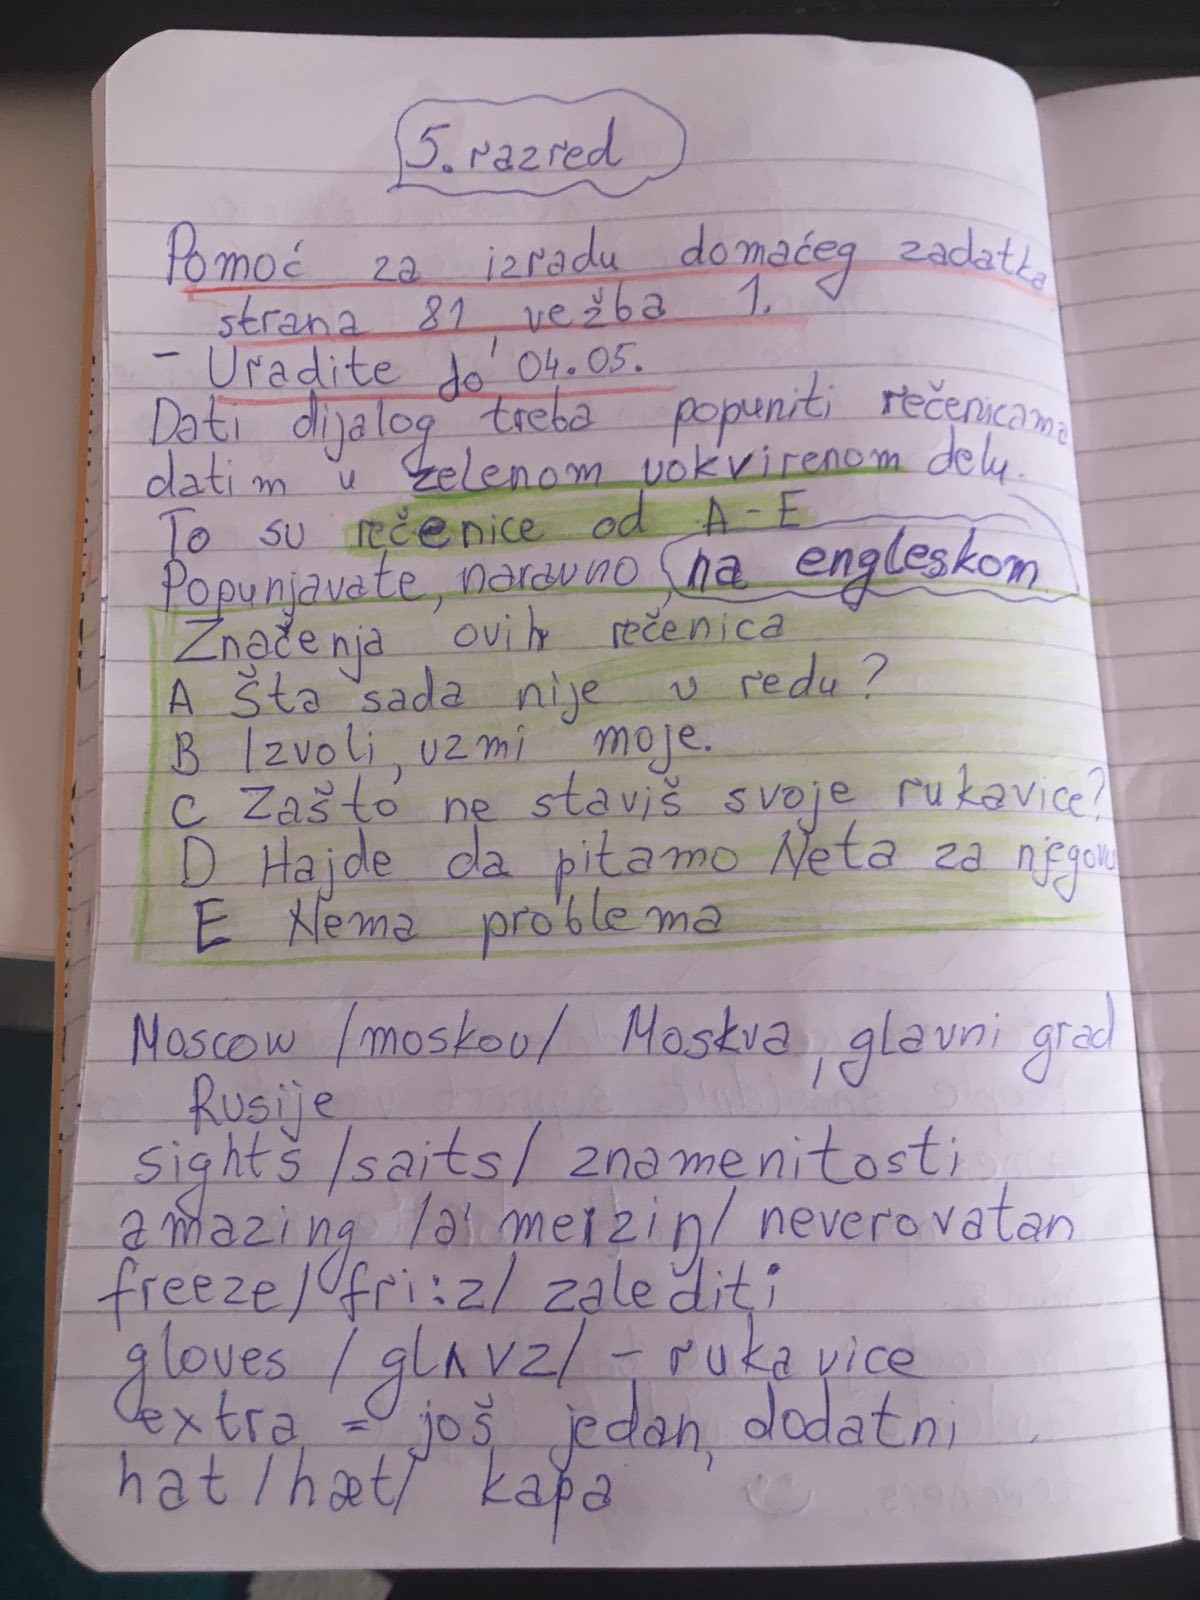 5. razred
Pomoć za izradu domaćeg zadatka
strana 81 vežba 1.
- Uradite do 04.05.
Dati dijalog treba popuniti rečenicama
datim u zelenom uokvirenom delu.
To su rečenice od A-E
Popunjavate, naravno, na engleskom
Značenja ovih rečenica
A Šta sada nije u redu?
B Izvoli, uzmi moje.
C Zašto ne staviš svoje rukavice?
D Hajde da pitamo Neta za njegovu
E Nema problema
Moscow /moskou/ Moskva, glavni grad
Rusije
sights /saits/ znamenitosti
amazing /a'meiziŋ/ neverovatan
freeze /fri:z/ zalediti
gloves /glʌvz/ - rukavice
extra = još jedan, dodatni
hat /hæt/ kapa